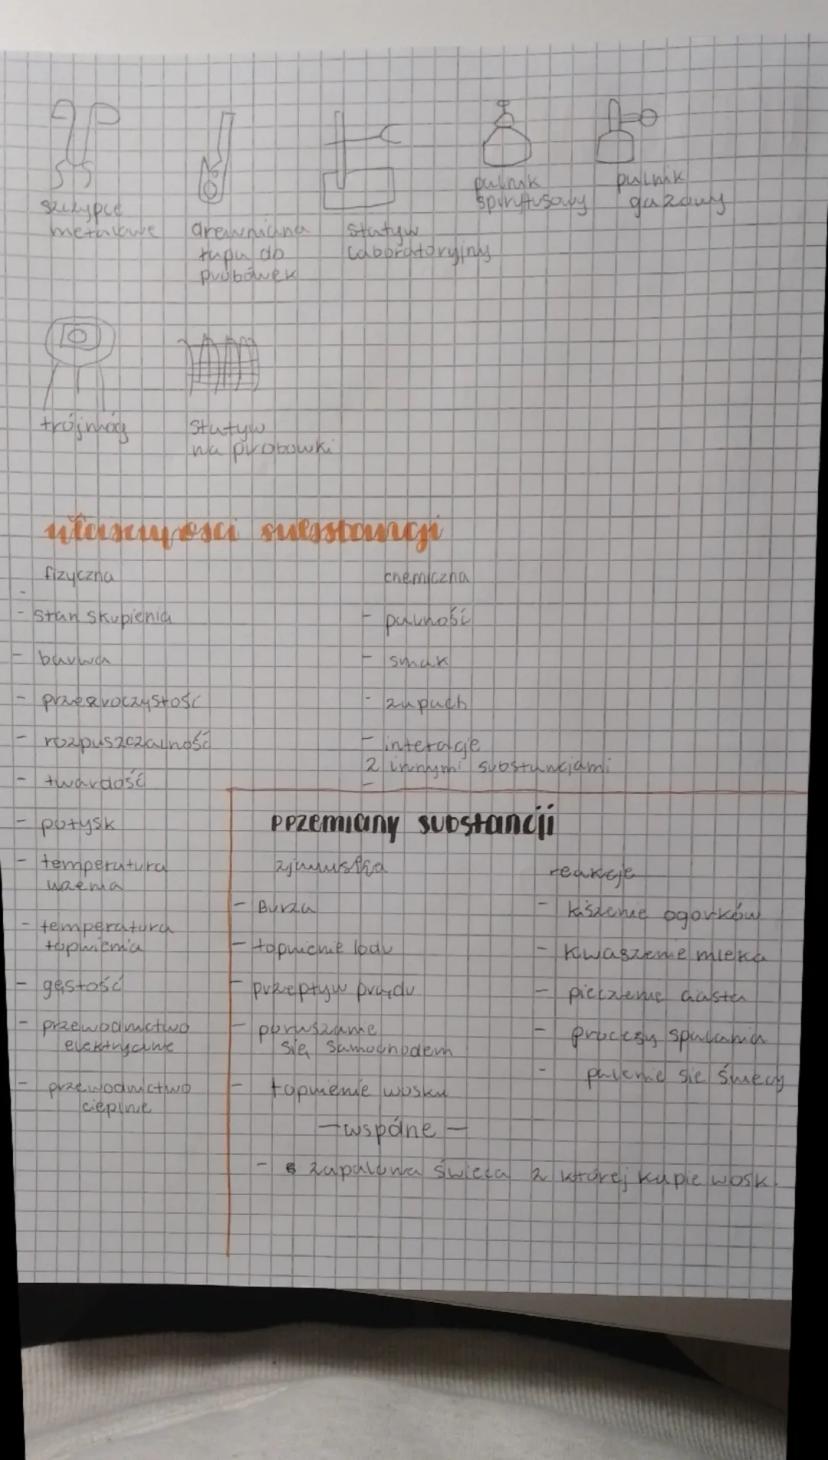 szczypce
metalowe
drewniana
łapa do
probówek
statyw
laboratoryjny
palnik
spirytusowy
palnik
gazowy
trójnóg
statyw
na probowki
właściwości substancji
fizyczna
- stan skupienia
- barwa
- przezroczystość
- rozpuszczalność
- twardość
- połysk
- temperatura
wrenia
- temperatura
topnienia
- gęstość
- przewodnictwo
elektryczne
- przewodnictwo
cieplne
chemiczna
- palność
- smak
- zapach
- interakcje
z innymi substancjami
-
przemiany substancji
zjawiska
- Burza
- topnienie lodu
- przepływ prądu
- poruszanie
się samochodem
- topnienie wosku
reakcje
- kiszenie ogorków
- kwaszenie mleka
- pieczenie ciasta
- procesy spalania
- palenie sie świecy
- wspólne -
- zapalona świeca z której kapie wosk